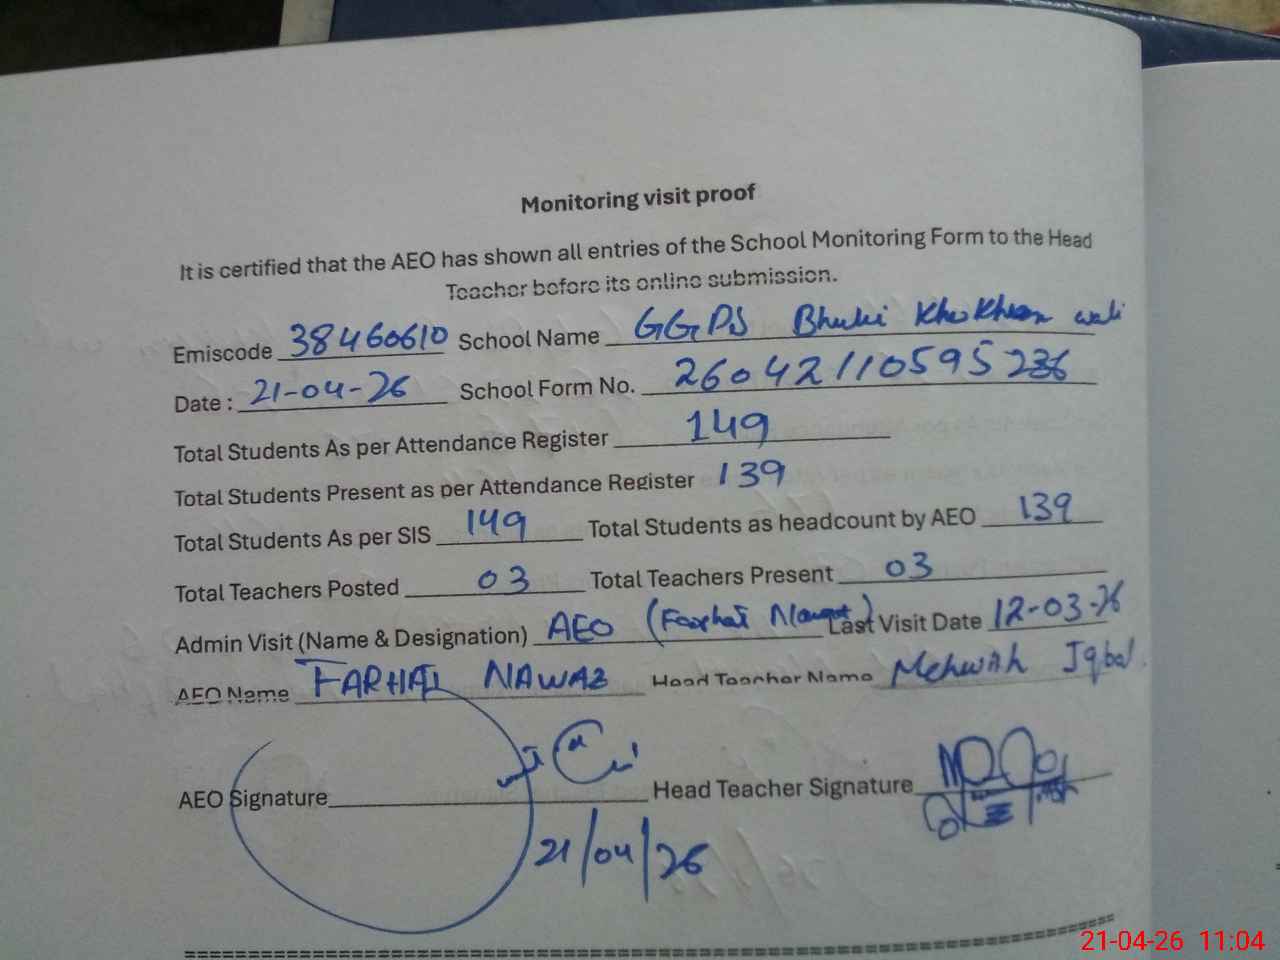 Monitoring visit proof
It is certified that the AEO has shown all entries of the School Monitoring Form to the Head
Teacher before its online submission.
Emiscode 38460610 School Name GGPS Bhuki Khokhran wali
Date : 21-04-26 School Form No. 26042110595236
Total Students As per Attendance Register 149
Total Students Present as per Attendance Register 139
Total Students As per SIS 149 Total Students as headcount by AEO 139
Total Teachers Posted 03 Total Teachers Present 03
Admin Visit (Name & Designation) AEO (Farhat Nawaz) Last Visit Date 12-03-26
AEO Name FARHAT NAWAZ Head Teacher Name Mehwish Iqbal
AEO Signature Head Teacher Signature
21/04/26
21-04-26 11:04